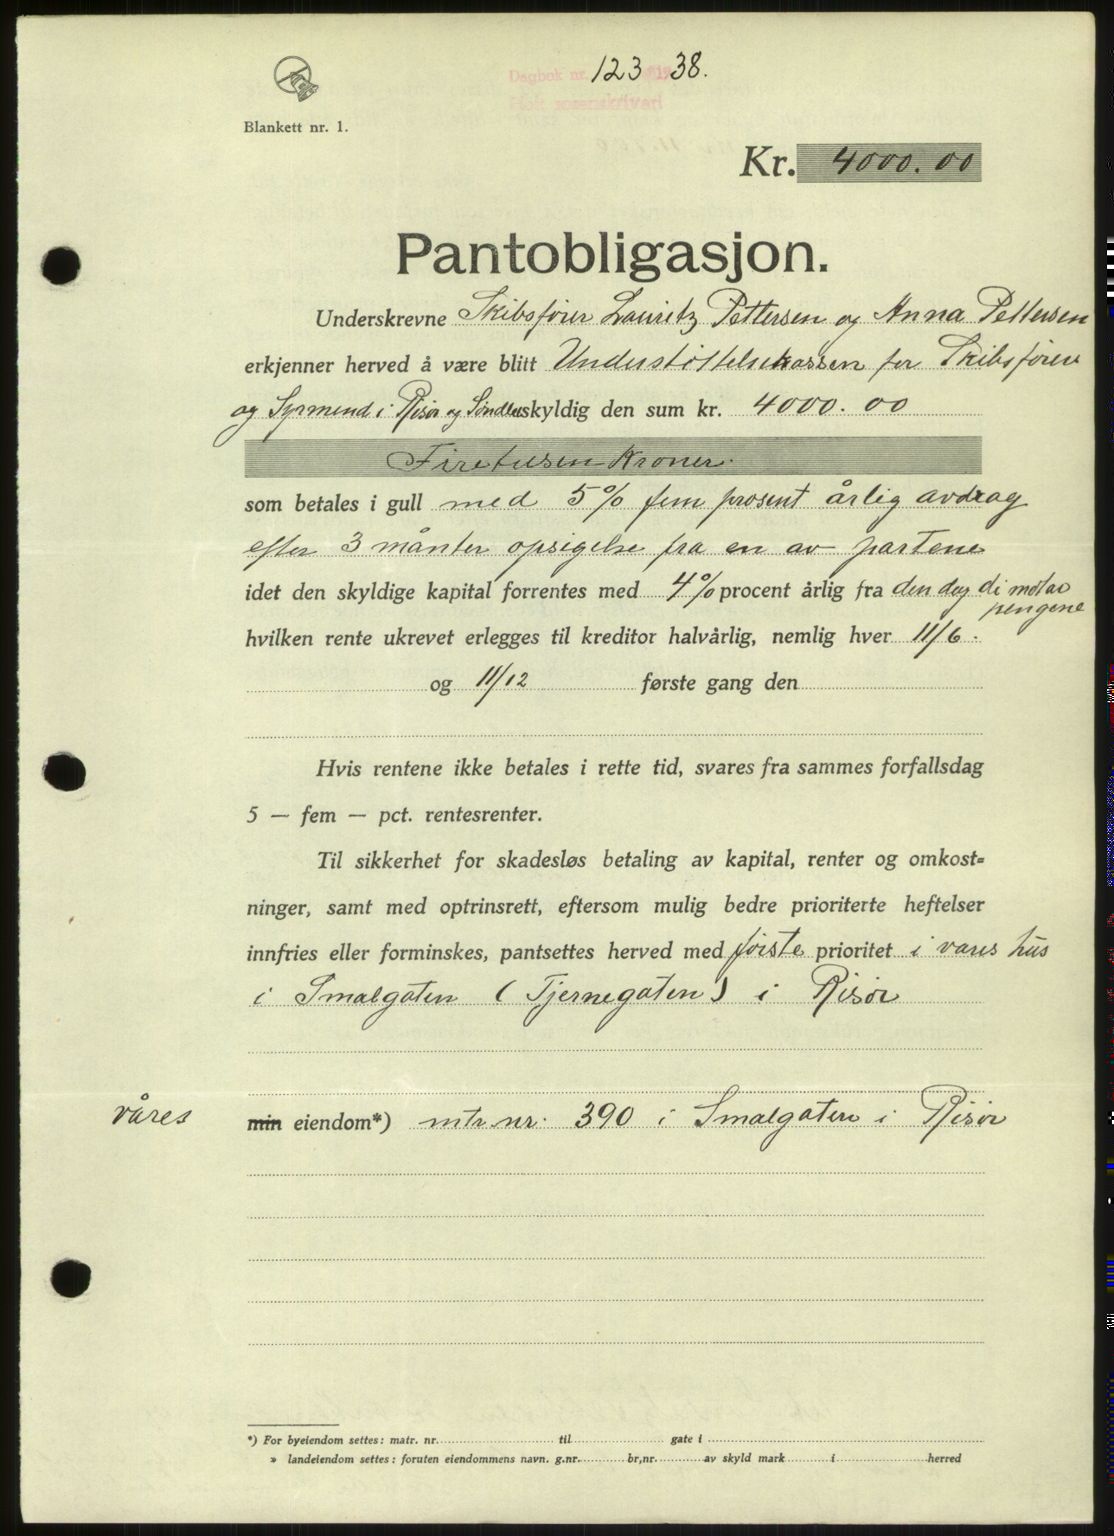 Dagbok nr. 123 1938.
Holt sorenskriveri
Blankett nr. 1.
Kr. 4000.00
Pantobligasjon.
Underskrevne Skibsfører Lauritz Pettersen og Anna Pettersen
erkjenner herved å være blitt Understøttelseskassen for Skibsførere
og Syrmend i Risør og Søndeled skyldig den sum kr. 4000.00
Firetusen Kroner.
som betales i gull med 5% fem prosent årlig avdrag
efter 3 månter opsigelse fra en av partene
idet den skyldige kapital forrentes med 4% procent årlig fra den dag di motar
pengene
hvilken rente ukrevet erlegges til kreditor halvårlig, nemlig hver 11/6.
og 11/12 første gang den
Hvis rentene ikke betales i rette tid, svares fra sammes forfallsdag
5 — fem — pct. rentesrenter.
Til sikkerhet for skadesløs betaling av kapital, renter og omkost=
ninger, samt med optrinsrett, eftersom mulig bedre prioriterte heftelser
innfries eller forminskes, pantsettes herved med første prioritet i vares hus
i Smalgaten (Tjernegaten) i Risør
våres min eiendom*) mtr. nr. 390 i Smalgaten i Risør
*) For byeiendom settes: matr. nr. til gate i
» landeiendom settes: foruten eiendommens navn. g.nr. br,nr. av skyld mark i herred